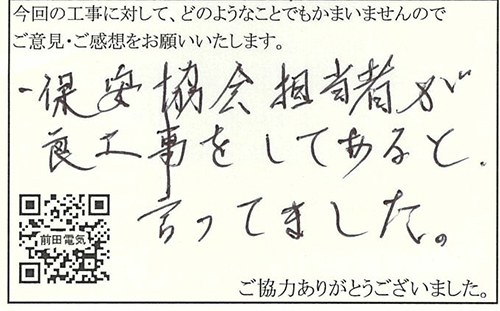 今回の工事に対して、どのようなことでもかまいませんので
ご意見・ご感想をお願いいたします。
-保安協会担当者が
良工事をしてあると、
言ってました。
前田電気
ご協力ありがとうございました。